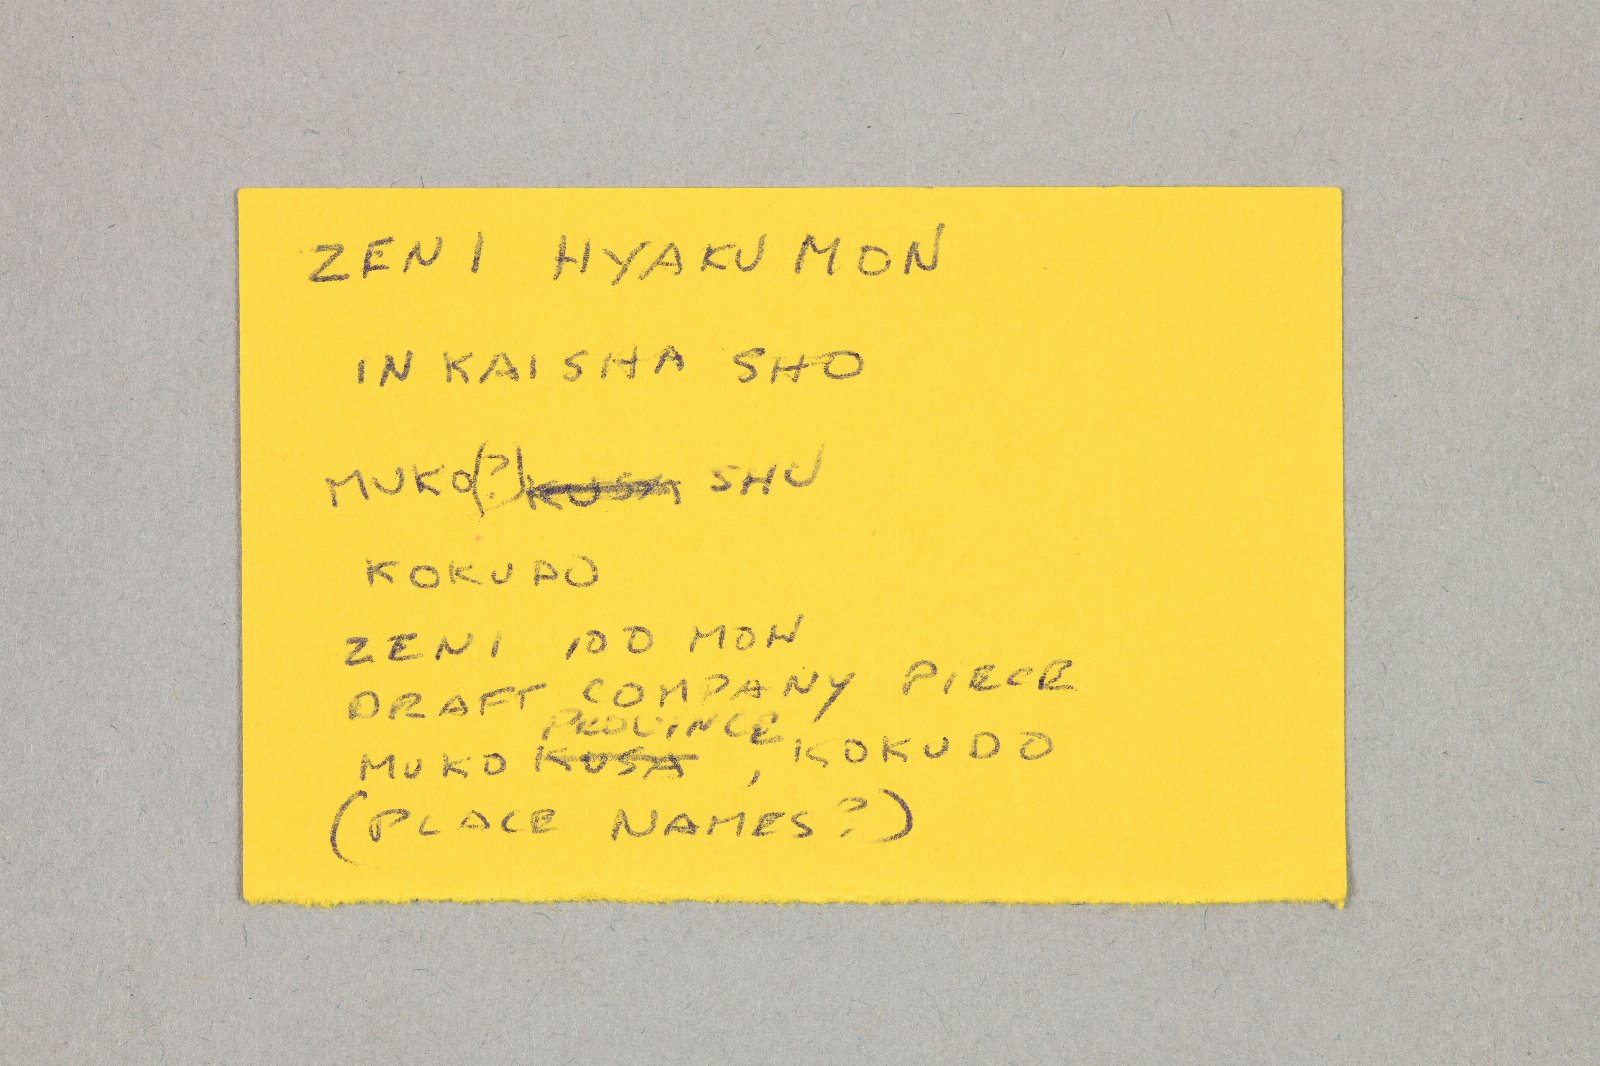 ZENI HYAKU MON
IN KAISHA SHO
MUKO(?) KUSA SHU
KOKUDO
ZENI 100 MON
DRAFT COMPANY PIECE
PROVINCE
MUKO KUSA , KOKUDO
(PLACE NAMES?)